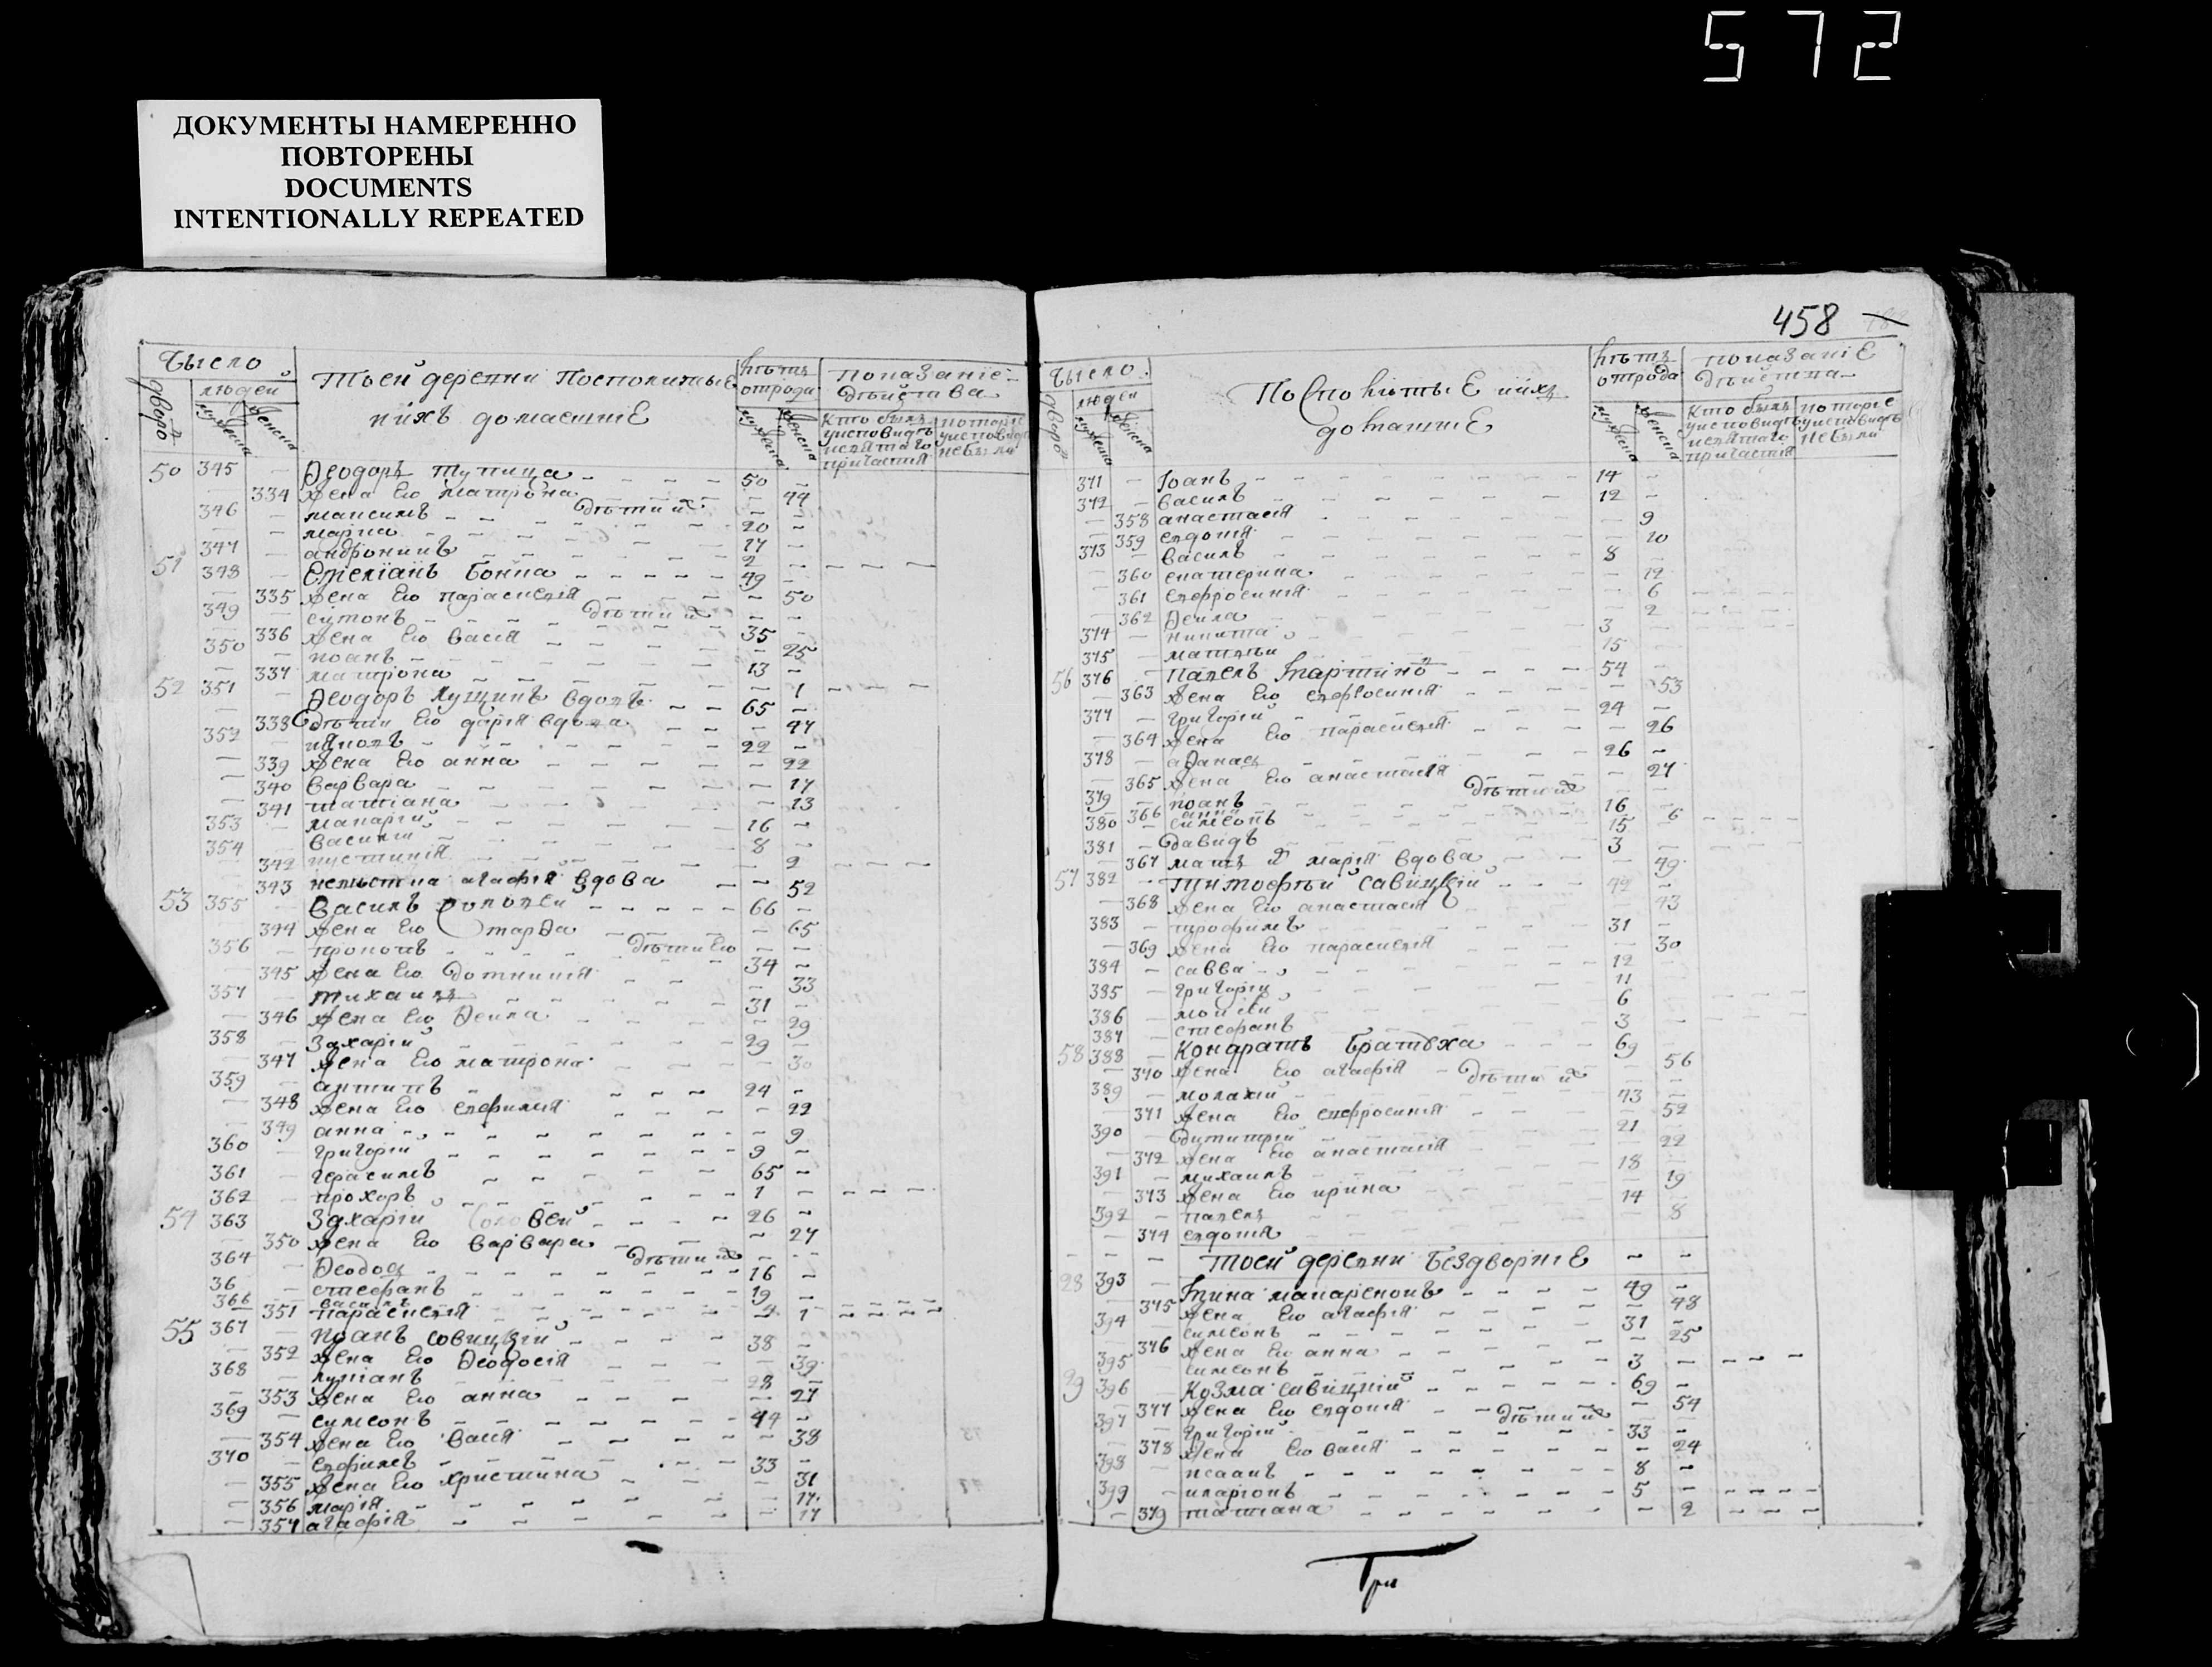 572
ДОКУМЕНТЫ НАМЕРЕННО
ПОВТОРЕНЫ
DOCUMENTS
INTENTIONALLY REPEATED
Число
людей
дворо
мужеска
женска
Тоей деревни Посполитые
ихъ домашніе
лѣтъ
отрода
Показаніе
дѣйства
Кто былъ у исповѣди и святаго причастія
которіе у исповѣди небыли
50 345 – Ѳеодоръ 50 –
– 334 жена его матрона – 44
дѣти их
346 – максимъ – – 20 –
марко 17 –
347 – андроникъ 2 –
51 348 – Емеліанъ 49 –
– 335 жена его параскевія – 50
дѣти их
349 – симонъ 35 –
– 336 жена его васса – 25
350 – иоанъ 13 –
– 337 матрона – 1
52 351 – Ѳеодоръ Лущикъ вдовъ 65 –
– 338 его дарія вдова – 47
352 – яковъ 22 –
– 339 жена его анна – 22
– 340 варвара – 17
– 341 татіана – 13
353 – макарій 16 –
354 – василій 8 –
– 342 иустинія – 2
– 343 невѣстка агафія вдова – 52
53 355 – василь 66 –
– 344 жена его марѳа – 65
дѣти его
356 – прокопъ 34 –
– 345 жена его домникія – 33
357 – михаилъ 31 –
– 346 жена его Ѳекла – 29
358 – Захарій 29 –
– 347 жена его матрона – 30
359 – антипъ 24 –
– 348 жена его евфимія – 22
– 349 анна – 9
360 – григорій 9 –
361 – герасимъ 65 –
362 – прохоръ 1 –
54 363 – Захарій Соловей 26 –
– 350 жена его варвара – 27
дѣти их
364 – Ѳеодосъ 16 –
36 – стефанъ 19 –
366 – василь
– 351 параскевія – 1
55 367 – иоанъ совицкій 38 –
– 352 жена его Ѳеодосія – 39
368 – лукіанъ 28 –
– 353 жена его анна – 27
369 – симеонъ 44 –
– 354 жена его васса – 38
370 – евфимъ 33 –
– 355 жена его христина – 31
– 356 марія – 17
– 357 агафія – 17
458
Число
людей
дворо
мужеска
женска
Посполитые иихъ
домашніе
лѣтъ
отрода
показаніе
дѣйства
Кто былъ у исповѣди и святаго причастія
которіе у исповѣди небыли
371 – Іоанъ 14 –
372 – василь 12 –
– 358 анастасія – 9
– 359 евдокія – 10
373 – василь 8 –
– 360 екатерина – 12
– 361 евфросинія – 6
– 362 Ѳекла – 2
374 – никита 3
375 – матвѣй 15
56 376 – павелъ мартино 54 –
– 363 жена его евфросинія – 53
377 – григорій 24 –
– 364 жена его параскевія – 26
378 – аѳанасъ 26 –
– 365 жена его анастасія – 27
дѣти их
379 – иоанъ 16 –
366 анна 6
380 – симеонъ 15 –
381 – давидъ 3 –
– 367 мать их марія вдова – 49
57 382 – тимофѣй савицкій 42 –
– 368 жена его анастасія – 43
383 – трофимъ 31 –
– 369 жена его параскевія – 30
384 – савва 12
385 – григорій 11
386 – мойсѣй 6
387 – стефанъ 3
58 388 – Кондратъ Братуха 69
– 370 жена его агафія – 56
дѣти их
389 – малахій 43 –
– 371 жена его евфросинія – 52
390 – димитрій 21 –
– 372 жена его анастасія – 22
391 – михаилъ 18 –
– 373 жена его ирина – 19
392 – павелъ 14 –
– 374 евдокія – 8
– – – тоей деревни Бездворніе – –
28 393 – мина макаренокъ 49 –
– 375 жена его агафія – 48
394 – симеонъ 31 –
– 376 жена его анна – 25
395 – симеонъ 3 –
29 396 – Козма савицкій 69 –
– 377 жена его евдокія – 54
дѣти их
397 – григорій 33 –
– 378 жена его васса – 24
398 – исаакъ 8 –
399 – иларіонъ 5 –
– 379 татіана – 2
При